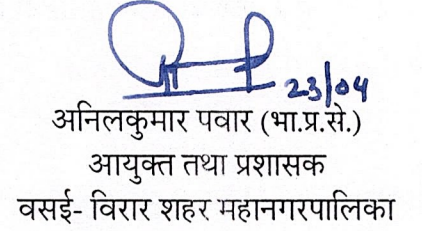 23/04
अनिलकुमार पवार (भा.प्र.से.)
आयुक्त तथा प्रशासक
वसई- विरार शहर महानगरपालिका